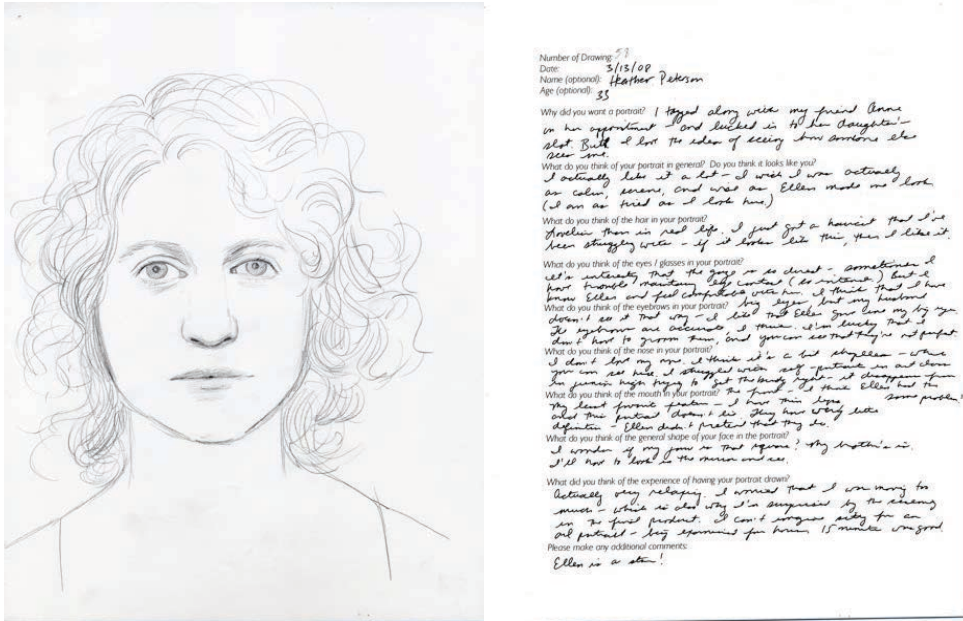 Number of Drawing: 58
Date: 3/13/08
Name (optional): Heather Peterson
Age (optional): 33
Why did you want a portrait? I tagged along with my friend Anne
on her appointment - and lucked in to her daughter's
slot. But I love the idea of seeing how someone else
sees me.
What do you think of your portrait in general? Do you think it looks like you?
I actually like it a lot - I wish I was actually
as calm, serene, and wise as Ellen made me look
(I am as tired as I look here.)
What do you think of the hair in your portrait?
Lovelier than in real life. I just got a haircut that I've
been struggling with - if it looks like this, then I like it.
What do you think of the eyes / glasses in your portrait?
It's interesting that the gaze is so direct - sometimes I
have trouble maintaining eye contact (so intimate) But I
know Ellen and feel comfortable with her. I think that I have
What do you think of the eyebrows in your portrait? big eyes, but my husband
doesn't see it that way - I like that Ellen gave me my big eyes.
The eyebrows are accurate, I think. I'm lucky that I
don't have to groom them, and you can see that they're not perfect.
What do you think of the nose in your portrait?
I don't love my nose. I think it's a bit shapeless - which
you can see here. I struggled with self-portraits in art class
in junior high trying to get the right - it disappears from
What do you think of the mouth in your portrait? the front. I think Ellen had the
some problem!
My least favorite feature - I have thin lips
and this portrait doesn't lie. They have very little
definition - Ellen didn't pretend that they do.
What do you think of the general shape of your face in the portrait?
I wonder if my jaw is that square? My brother's is.
I'll have to look in the mirror and see.
What did you think of the experience of having your portrait drawn?
Actually very relaxing. I worried that I was moving too
much - which is also why I'm surprised by the serenity
in the final product. I can't imagine sitting for an
oil portrait - being examined for hours. 15 minutes was good.
Please make any additional comments:
Ellen is a star!